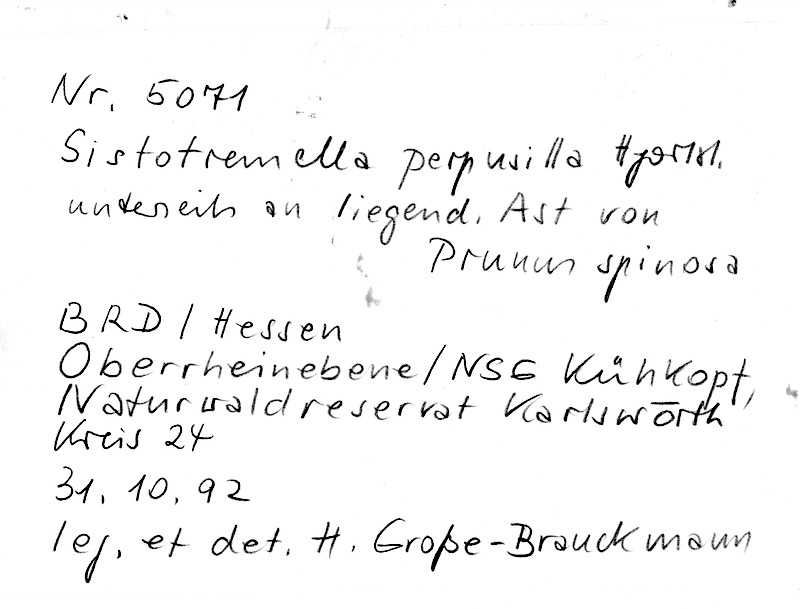 Nr. 5071
Sistotremella perpusilla Hjortst.
unterseits an liegend. Ast von
Prunus spinosa
BRD / Hessen
Oberrheinebene / NSG Kühkopf,
Naturwaldreservat Karlswörth
Kreis 24
31. 10. 92
leg. et det. H. Große-Brauckmann